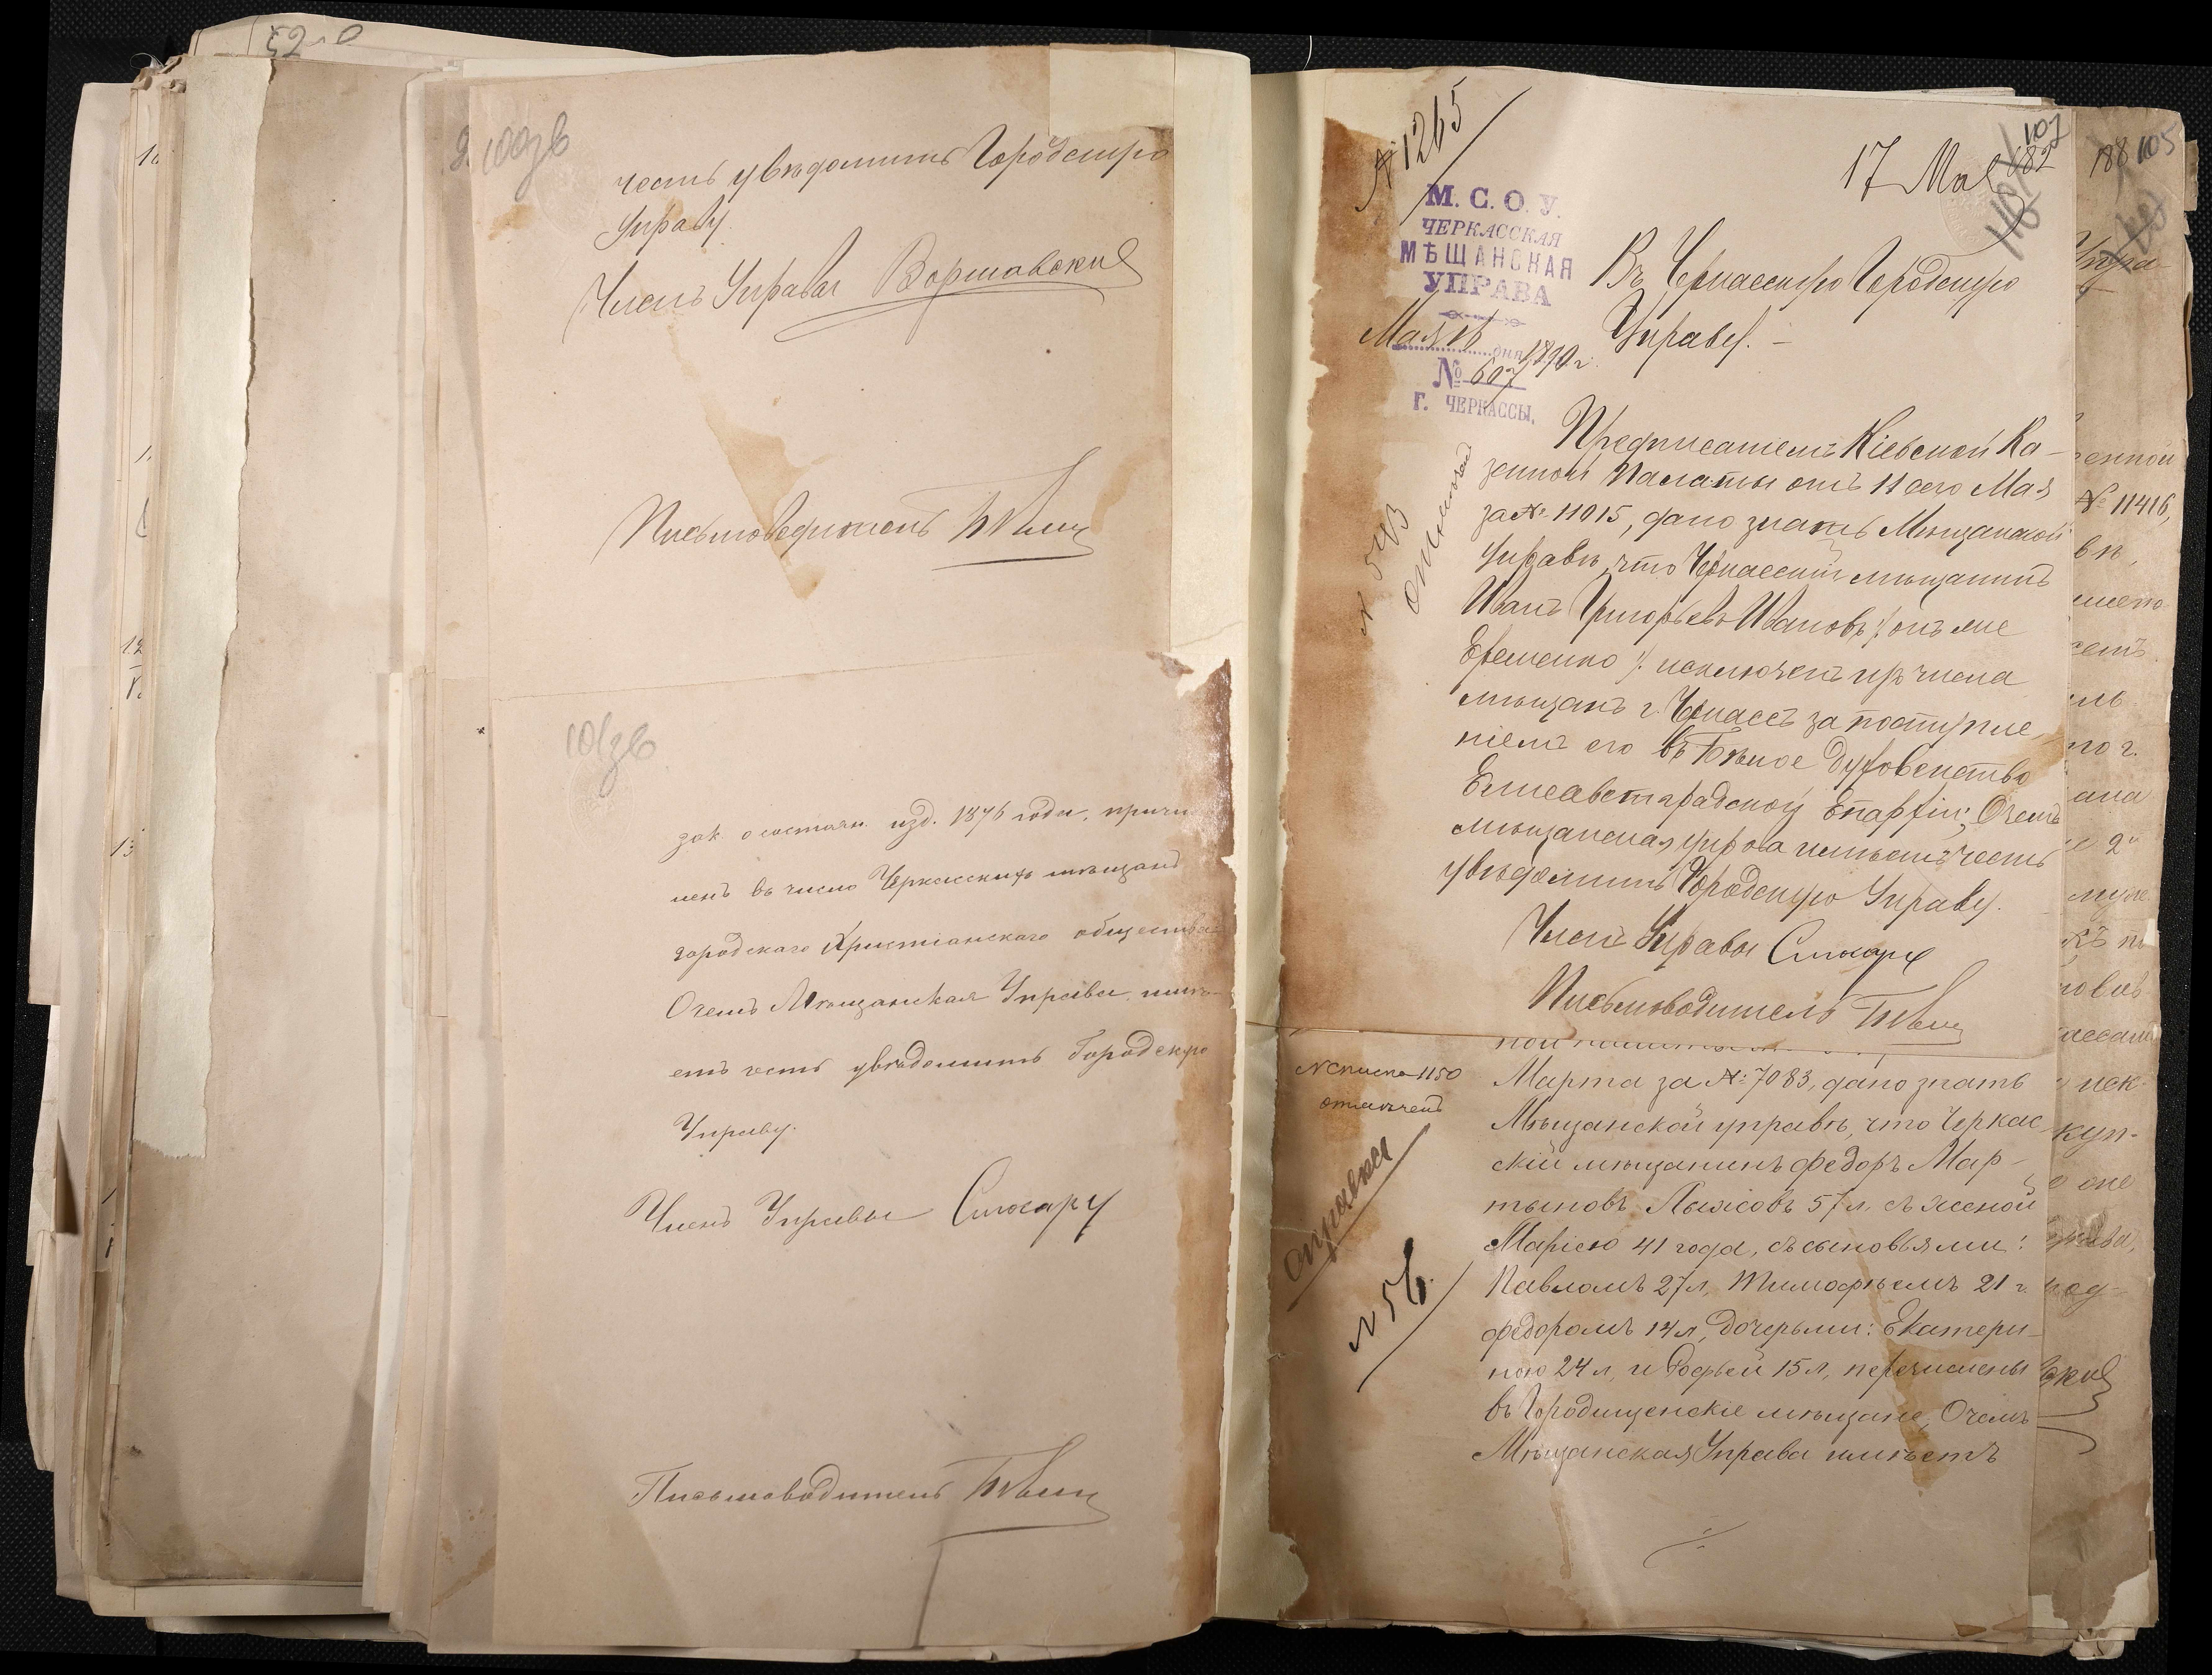 честь увѣдомить Городскую
Управу.
Членъ Управы Варшавскій
Письмоводитель
зак. о состоян. изд. 1876 года, причи
ленъ въ число Черкасскихъ мѣщанъ
городскаго Христіанскаго общества
О чемъ Мѣщанская Управа имѣ-
етъ честь увѣдомить Городскую
Управу.
Членъ Управы Слюсарь
Письмоводитель
№ 1265
17 Мая
107
182
М. С. О. У.
ЧЕРКАССКАЯ
МѢЩАНСКАЯ
УПРАВА
Мая 16 дня 1890 г.
№ 607
Г. ЧЕРКАССЫ.
Въ Черкасскую Городскую
Управу. –
Предписаніемъ Кіевской Ка-
зенной Палаты отъ 11 сего Мая
за № 11015, дано знать Мѣщанской
Управѣ, что Черкасскій мѣщанинъ
Иванъ Григорьевъ Ивановъ /: онъ же
Еременко :/ исключенъ изъ числа
мѣщанъ г. Черкассъ за поступле
ніемъ его въ Бѣлое Духовенство
Елисаветградской Епархіи; О чемъ
мѣщанская управа имѣетъ честь
увѣдомить Городскую Управу.
Членъ Управы Слюсарь
Письмоводитель
№ списка 1150
отмѣченъ
Марта за №: 7083, дано знать
Мѣщанской управѣ, что Черкас
скій мѣщанинъ Федоръ Мар-
тыновъ 57 л. съ женой
Маріею 41 года, съ сыновьями:
Павломъ 27 л, Тимофѣемъ 21 г.
Федоромъ 14 л, дочерьми: Екатери-
ною 24 л, и Софьей 15 л, перечислены
въ Городищенскіе мѣщане, О чемъ
Мѣщанская Управа имѣетъ
справка
№ 56.
188
105
№ 11416,